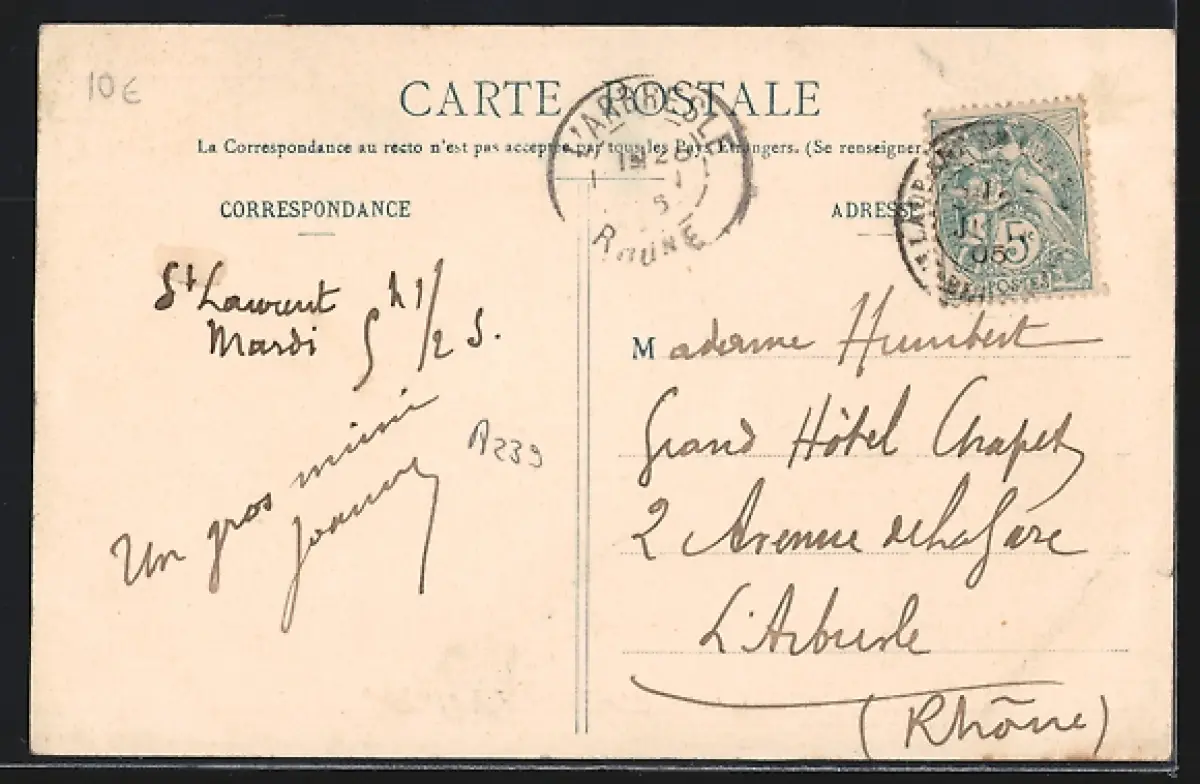 10€
CARTE POSTALE
La Correspondance au recto n'est pas acceptée par tous les Pays Etrangers. (Se renseigner
L'ARBRESLE
RHONE
CORRESPONDANCE
ADRESSE
05
5c
POSTES
St Laurent
Mardi 5 h 1/2 S.
Un gros mimi
Jeanne
A239
Madame Humbert
Grand Hôtel Chapet
2 Avenue de la Gare
L'Arbresle
(Rhône)